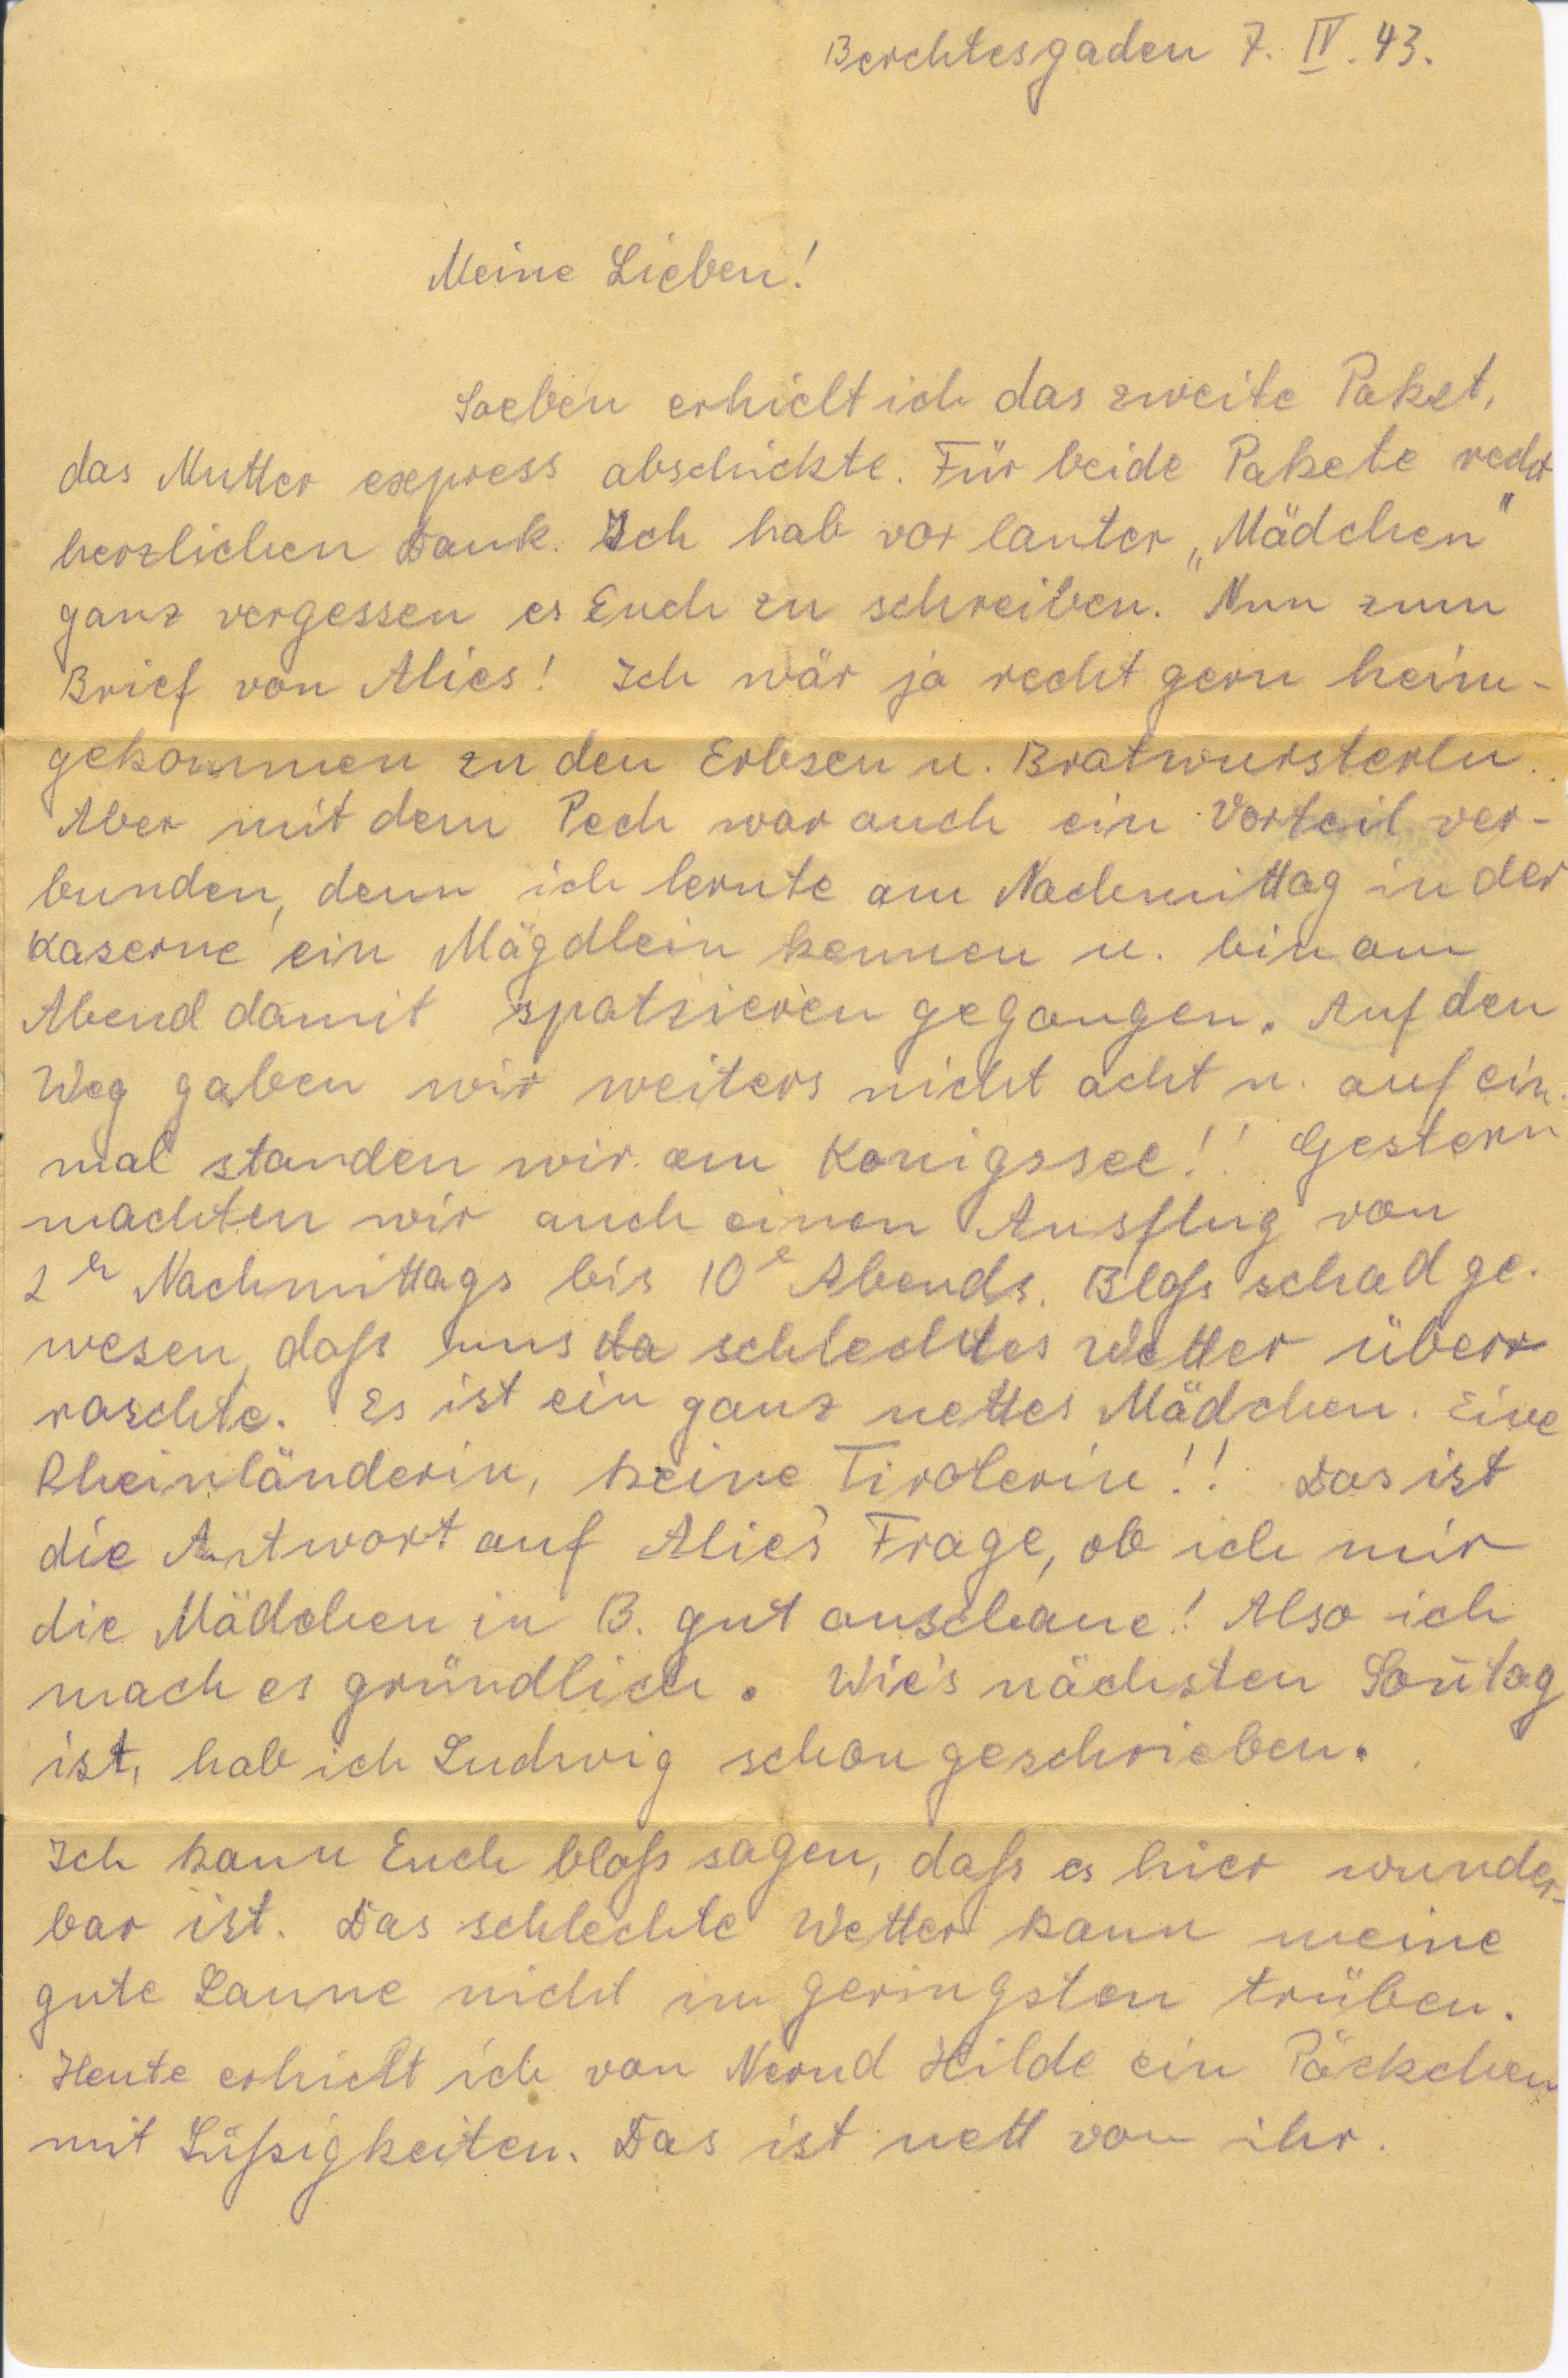 Berchtesgaden 7. IV. 43.
Meine Lieben!
Soeben erhielt ich das zweite Paket,
das Mutter express abschickte. Für beide Pakete recht
herzlichen Dank. Ich hab vor lauter „Mädchen"
ganz vergessen es Euch zu schreiben. Nun zum
Brief von Alies! Ich wär ja recht gern heim-
gekommen zu den Erbsen u. Bratwursterln.
Aber mit dem Pech war auch ein Vorteil ver-
bunden, denn ich lernte am Nachmittag in der
Kaserne ein Mägdlein kennen u. bin am
Abend damit spatzieren gegangen. Auf den
Weg gaben wir weiters nicht acht u. auf ein-
mal standen wir am Königssee!! Gestern
machten wir auch einen Ausflug von
2 h Nachmittags bis 10 h Abends. Bloß schad ge-
wesen, daß uns da schlechtes Wetter über-
raschte. Es ist ein ganz nettes Mädchen. Eine
Rheinländerin, keine Tirolerin!! Das ist
die Antwort auf Alie's Frage, ob ich mir
die Mädchen in B. gut anschaue! Also ich
mach es gründlich. Wie's nächsten Son̄tag
ist, hab ich Ludwig schon geschrieben.
Ich kann Euch bloß sagen, daß es hier wunder-
bar ist. Das schlechte Wetter kann meine
gute Laune nicht im geringsten trüben.
Heute erhielt ich von Nernd Hilde ein Päckchen
mit Süßigkeiten. Das ist nett von ihr.